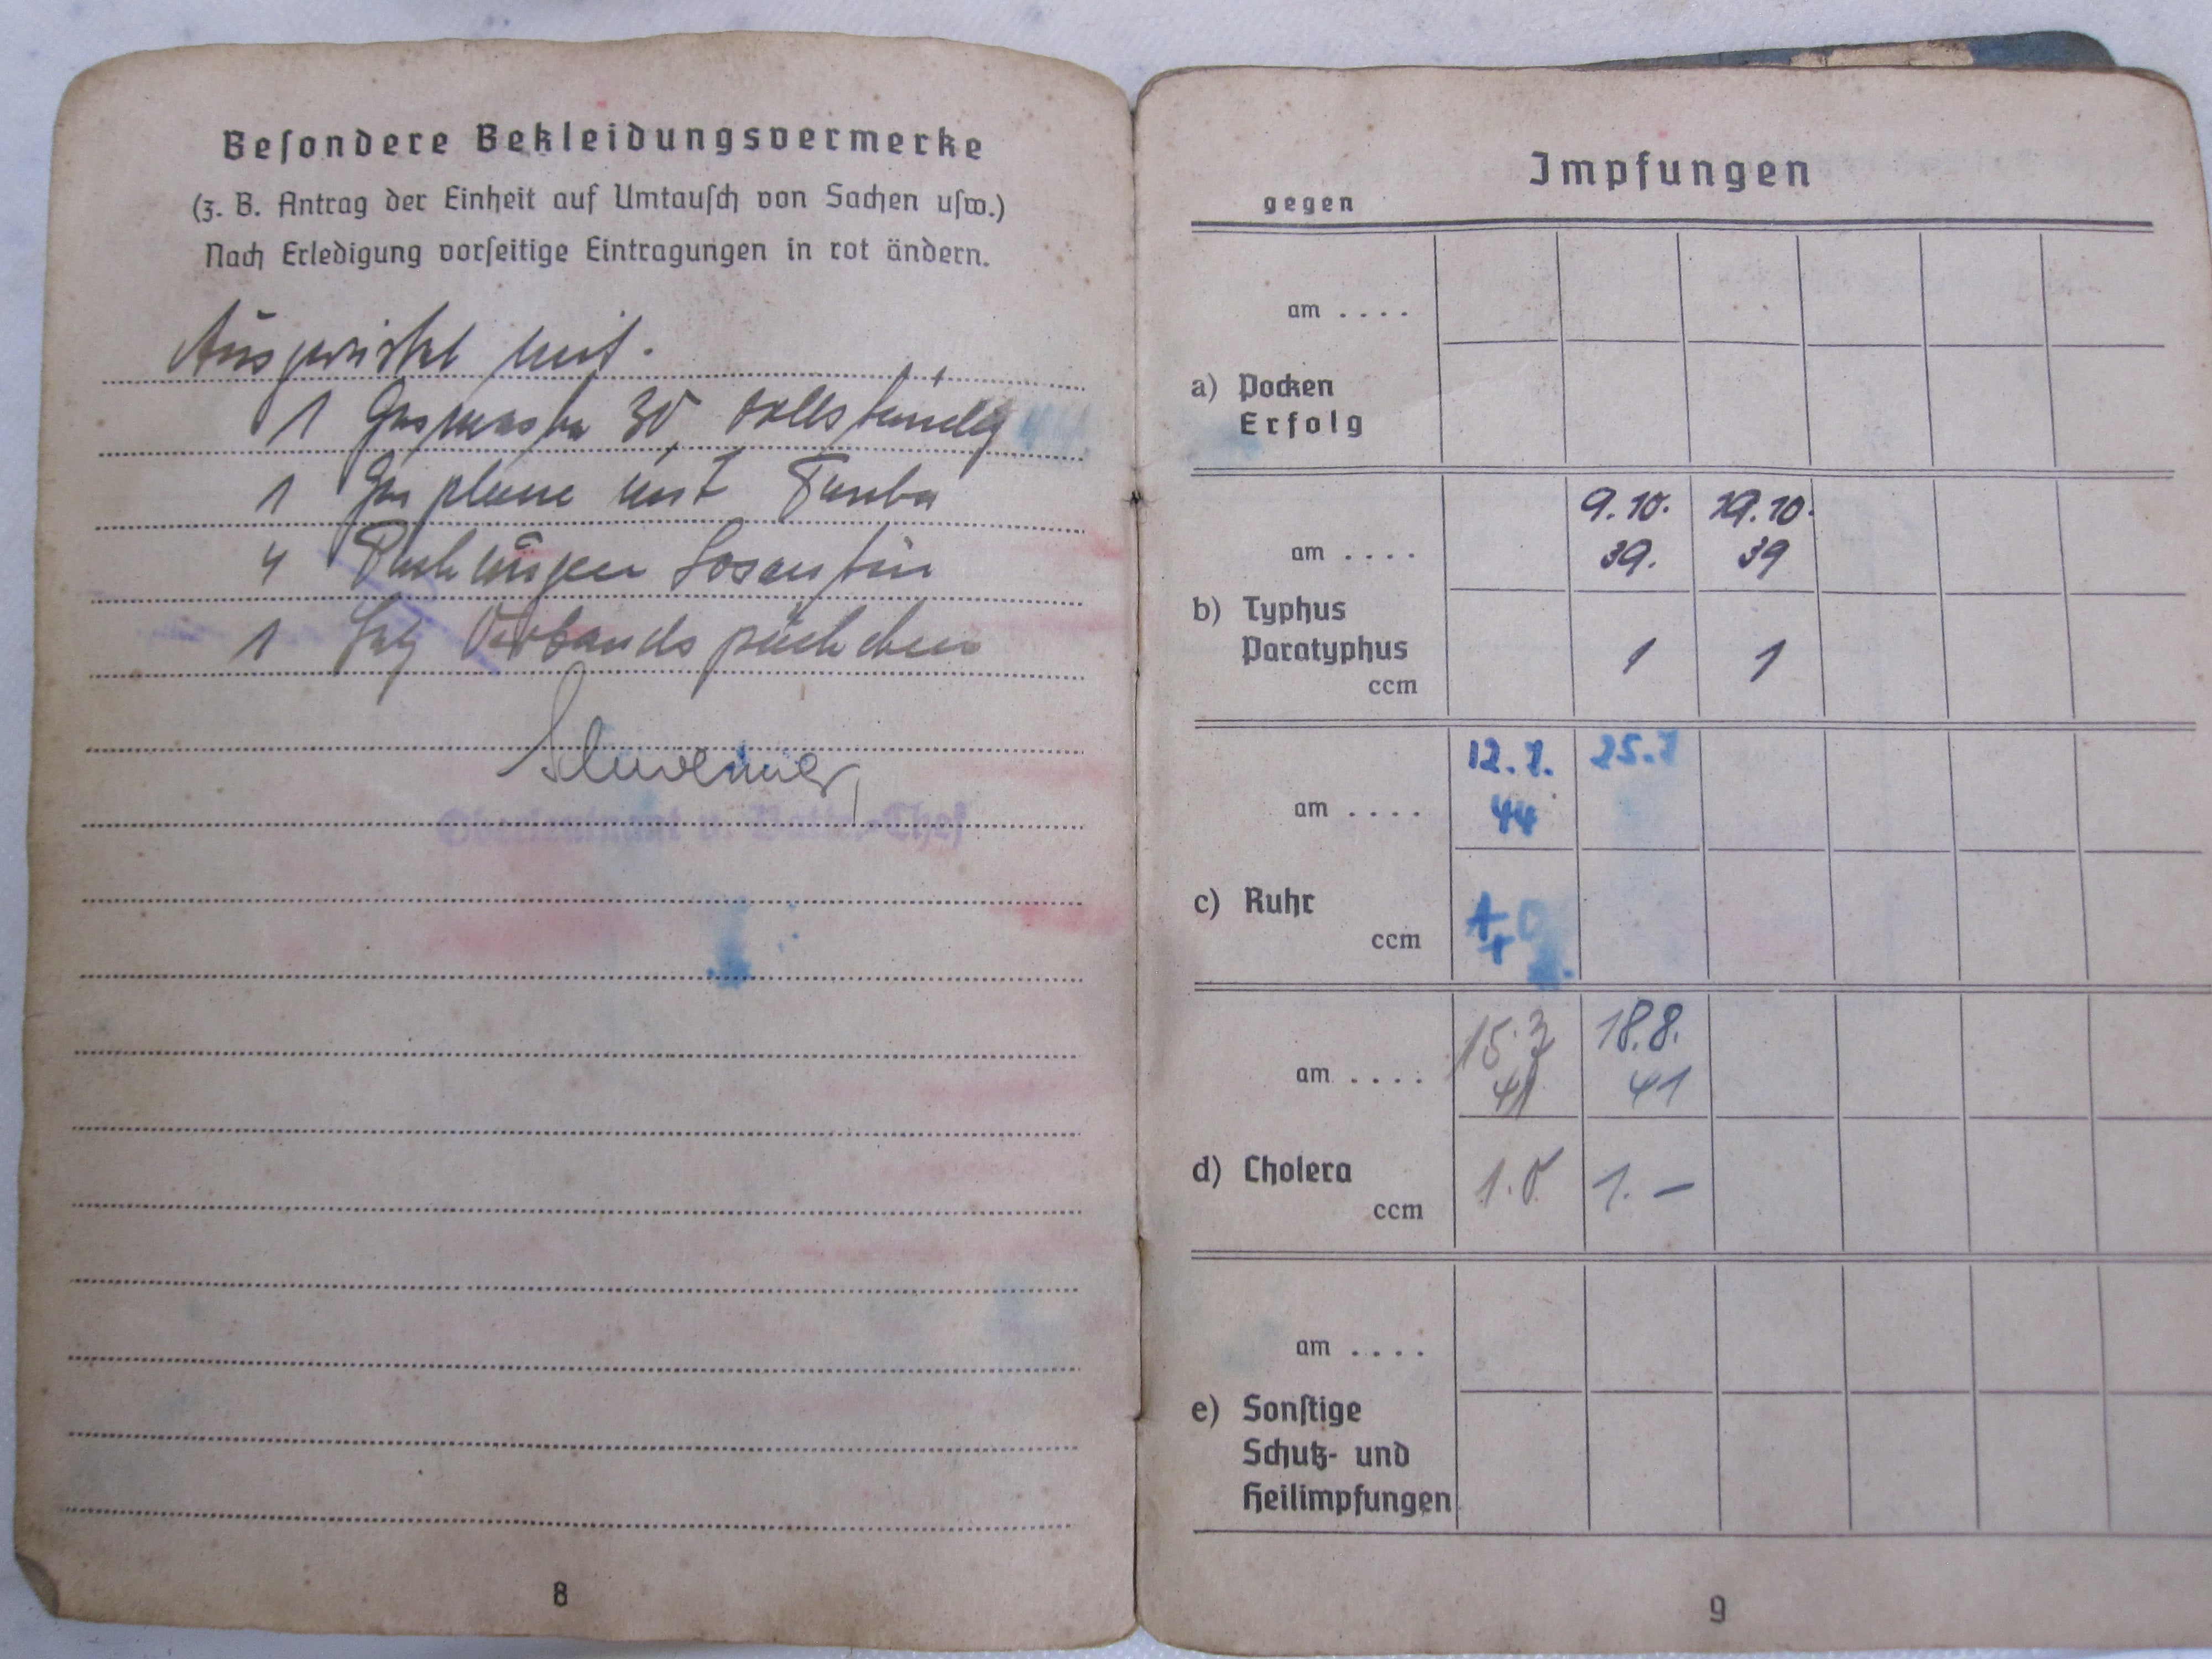 Beſondere Bekleidungsvermerke
(z. B. Antrag der Einheit auf Umtauſch von Sachen uſw.)
Nach Erledigung vorſeitige Eintragungen in rot ändern.
mit.
1 Gasmaske 30, vollständig
1 Gasplane mit
4 Packungen Losantin
1 Verbandspäckchen
Oberleutnant u. Battr.-Chef
8
Impfungen
gegen
am . . . .
a) Pocken
Erfolg
9.10. 19.10.
am . . . . 39. 39
b) Typhus
Paratyphus 1 1
ccm
12.7. 25.7
am . . . . 44
c) Ruhr
ccm
15.3 18.8.
am . . . . 41 41
d) Cholera 1.0 1. –
ccm
am . . . .
e) Sonſtige
Schutz- und
Heilimpfungen
9